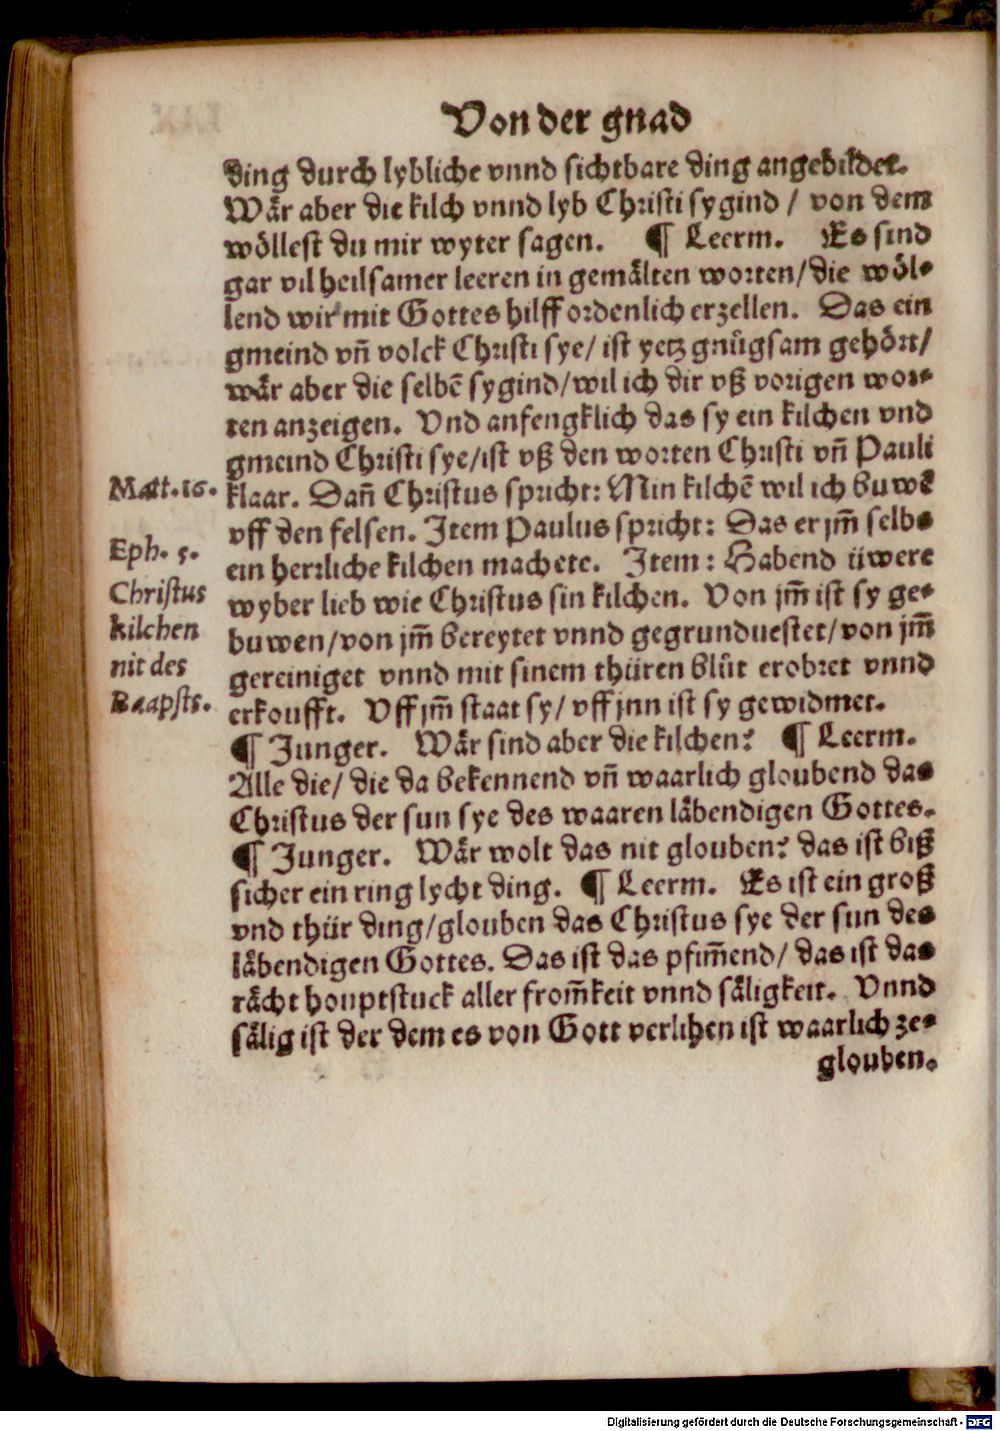 Von der gnad
ding durch lybliche vnnd sichtbare ding angebildet.
Wär aber die kilch vnnd lyb Christi sygind / von dem
wöllest du mir wyter sagen. ¶ Leerm. Es sind
gar vil heilsamer leeren in gemälten worten/die wöl-
lend wir mit Gottes hilff ordenlich erzellen. Das ein
gmeind vñ volck Christi sye/ ist yetz gnůgsam gehört/
wär aber die selbē sygind/wil ich dir vß vorigen wor-
ten anzeigen. Vnd anfengklich das sy ein kilchen vnd
gmeind Christi sye/ist vß den worten Christi vñ Pauli
Matt.16.
klaar. Dañ Christus spricht: Min kilchē wil ich buwē
vff den felsen. Item Paulus spricht: Das er jm̄ selbs
Eph. 5.
ein herrliche kilchen machete. Item: Habend üwere
Christus
wyber lieb wie Christus sin kilchen. Von jm̄ ist sy ge-
kilchen
buwen/von jm̄ bereytet vnnd gegrunduestet/von jm̄
nit des
gereiniget vnnd mit sinem thüren blůt erobret vnnd
Baapsts.
erkoufft. Vff jm̄ staat sy/ vff jnn ist sy gewidmet.
¶ Junger. Wär sind aber die kilchen? ¶ Leerm.
Alle die/ die da bekennend vñ waarlich gloubend das
Christus der sun sye des waaren läbendigen Gottes.
¶ Junger. Wär wolt das nit glouben? das ist biß
sicher ein ring lycht ding. ¶ Leerm. Es ist ein groß
vnd thür ding/glouben das Christus sye der sun des
läbendigen Gottes. Das ist das pfim̄end/ das ist das
rächt houptstuck aller from̄keit vnnd säligkeit. Vnnd
sälig ist der dem es von Gott verlihen ist waarlich ze-
glouben.
Digitalisierung gefördert durch die Deutsche Forschungsgemeinschaft - DFG